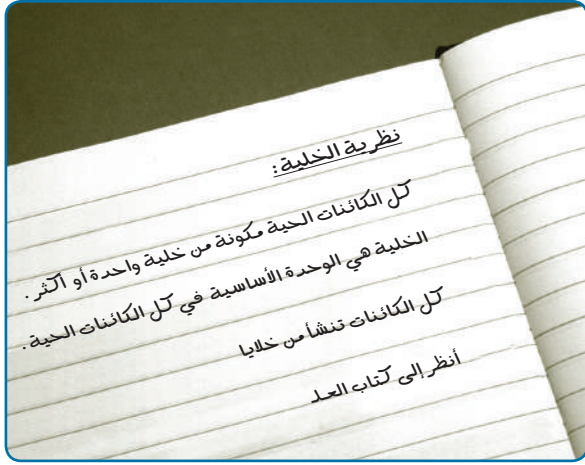 نظرية الخلية:
كل الكائنات الحية مكونة من خلية واحدة أو أكثر.
الخلية هي الوحدة الأساسية في كل الكائنات الحية.
كل الكائنات تنشأ من خلايا
أنظر إلى كتاب